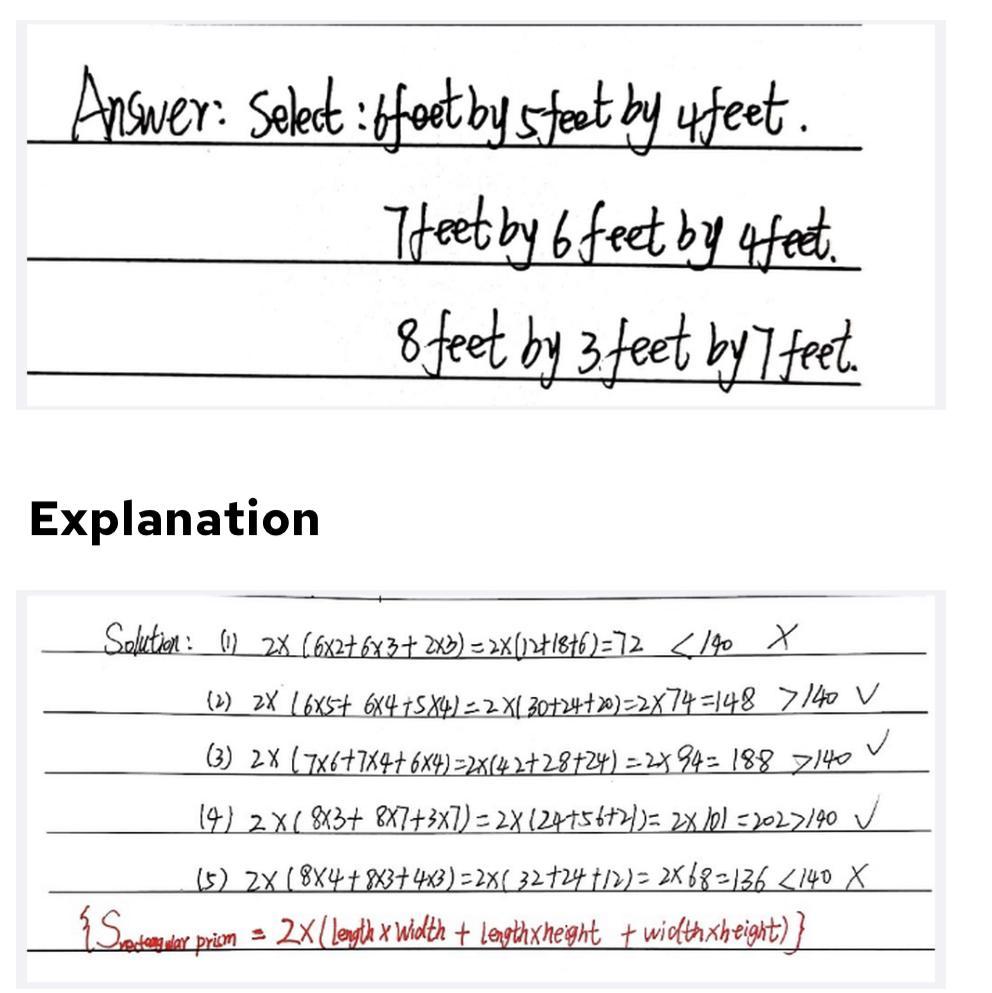 Answer: Select: 6feet by 5feet by 4feet.
7feet by 6 feet by 4feet.
8 feet by 3 feet by 7 feet.
Explanation
Solution: (1) 2×(6×2+6×3+2×3)=2×(12+18+6)=72 <140 ×
(2) 2×(6×5+6×4+5×4)=2×(30+24+20)=2×74=148 >140 ✓
(3) 2×(7×6+7×4+6×4)=2×(42+28+24)=2×94=188 >140 ✓
(4) 2×(8×3+8×7+3×7)=2×(24+56+21)=2×101=202>140 ✓
(5) 2×(8×4+8×3+4×3)=2×(32+24+12)=2×68=136 <140 ×
{S rectangular prism = 2×(length×width + length×height + width×height)}